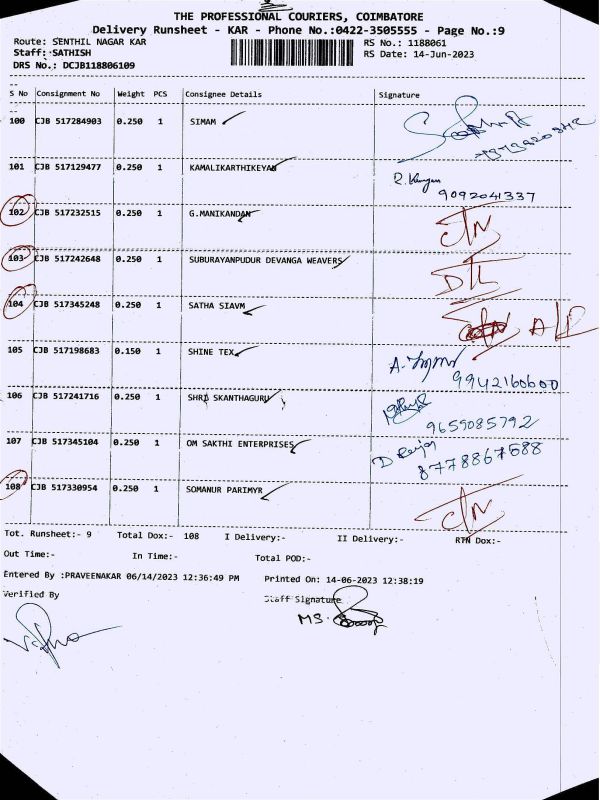 THE PROFESSIONAL COURIERS, COIMBATORE
Delivery Runsheet - KAR - Phone No.:0422-3505555 - Page No.:9
Route: SENTHIL NAGAR KAR
RS No.: 1188061
Staff: SATHISH
RS Date: 14-Jun-2023
DRS No.: DCJB118806109
S No Consignment No Weight PCS Consignee Details Signature
100 CJB 517284903 0.250 1 SIMAM
101 CJB 517129477 0.250 1 KAMALIKARTHIKEYAN
9092041337
102 CJB 517232515 0.250 1 G.MANIKANDAN
103 CJB 517242648 0.250 1 SUBURAYANPUDUR DEVANGA WEAVERS
DL
104 CJB 517345248 0.250 1 SATHA SIAVM
105 CJB 517198683 0.150 1 SHINE TEX
9942160600
106 CJB 517241716 0.250 1 SHRI SKANTHAGURU
9659085792
107 CJB 517345104 0.250 1 OM SAKTHI ENTERPRISES
8778867688
108 CJB 517330954 0.250 1 SOMANUR PARIMYR
Tot. Runsheet:- 9 Total Dox:- 108 I Delivery:- II Delivery:- RTN Dox:-
Out Time:- In Time:- Total POD:-
Entered By :PRAVEENAKAR 06/14/2023 12:36:49 PM Printed On: 14-06-2023 12:38:19
Verified By Staff Signature
MS.